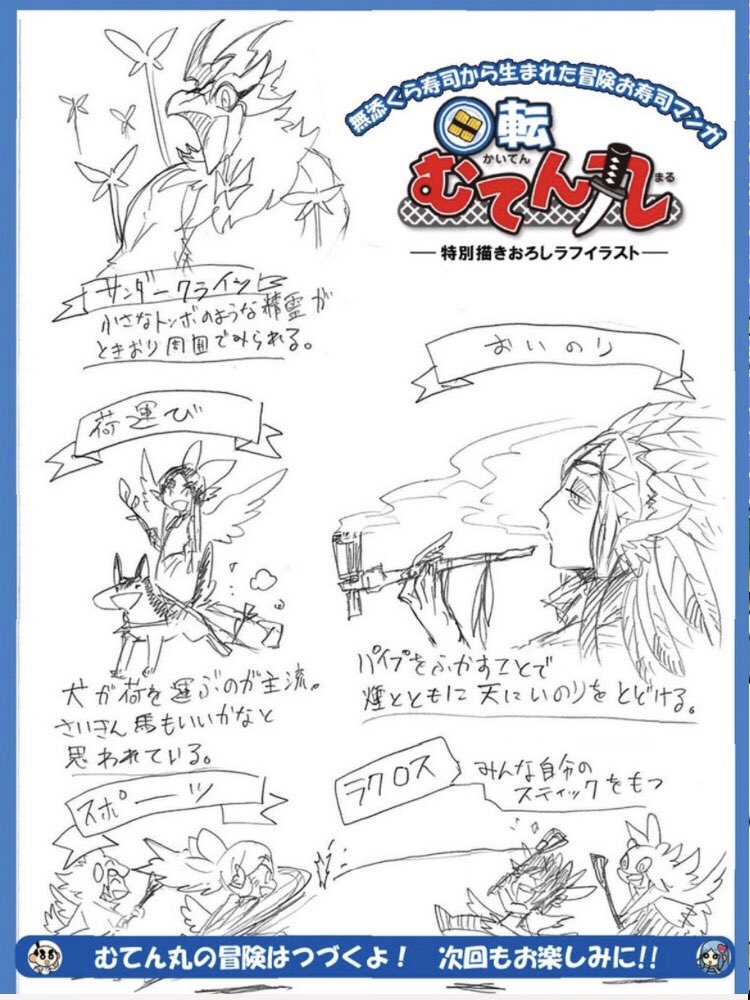 無添くら寿司から生まれた冒険お寿司マンガ
回転
かいてん
むてん丸
まる
特別描きおろしラフイラスト
サンダークライシス
小さなトンボのような精霊が
ときおり周囲でみられる。
おいのり
パイプをふかすことで
煙とともに天にいのりをとどける。
荷運び
犬が荷を運ぶのが主流。
さいきん馬もいいかなと
思われている。
スポーツ
ラクロス
みんな自分の
スティックをもつ
むてん丸の冒険はつづくよ! 次回もお楽しみに!!